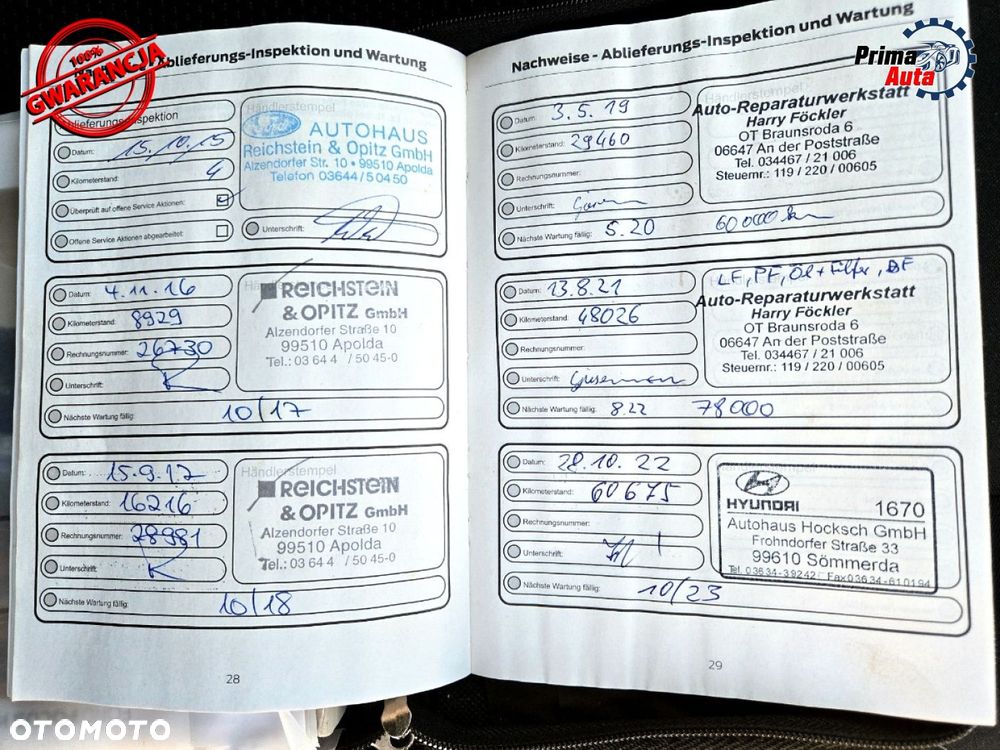 100%
GWARANCJA
Prima
Auta
Ablieferungs-Inspektion und Wartung
Ablieferungsinspektion
Händlerstempel
Datum: 15.10.15
Kilometerstand: 4
Überprüft auf offene Service Aktionen:
Offene Service Aktionen abgearbeitet:
Ford
AUTOHAUS
Reichstein & Opitz GmbH
Alzendorfer Str. 10 • 99510 Apolda
Telefon 03644 / 50450
Unterschrift:
Datum: 4.11.16
Kilometerstand: 8929
Rechnungsnummer: 26730
Unterschrift:
Nächste Wartung fällig: 10/17
REICHSTEIN
& OPITZ GmbH
Alzendorfer Straße 10
99510 Apolda
Tel.: 03 64 4 / 50 45-0
Datum: 15.9.17
Kilometerstand: 16216
Rechnungsnummer: 28981
Unterschrift:
Nächste Wartung fällig: 10/18
Händlerstempel
REICHSTEIN
& OPITZ GmbH
Alzendorfer Straße 10
99510 Apolda
Tel.: 03 64 4 / 50 45-0
28
Nachweise - Ablieferungs-Inspektion und Wartung
Datum: 3.5.19
Kilometerstand: 29460
Rechnungsnummer:
Unterschrift:
Nächste Wartung fällig: 5.20 60000 km
Auto-Reparaturwerkstatt
Harry Föckler
OT Braunsroda 6
06647 An der Poststraße
Tel. 034467 / 21 006
Steuernr.: 119 / 220 / 00605
Datum: 13.8.21
Kilometerstand: 48026
Rechnungsnummer:
Unterschrift:
Nächste Wartung fällig: 8.22 78000
LF, PF, Öl + Filter, BF
Auto-Reparaturwerkstatt
Harry Föckler
OT Braunsroda 6
06647 An der Poststraße
Tel. 034467 / 21 006
Steuernr.: 119 / 220 / 00605
Datum: 28.10.22
Kilometerstand: 60675
Rechnungsnummer:
Unterschrift:
Nächste Wartung fällig: 10/23
HYUNDAI 1670
Autohaus Hocksch GmbH
Frohndorfer Straße 33
99610 Sömmerda
Tel. 03634-39242 Fax 03634-610194
29
OTOMOTO